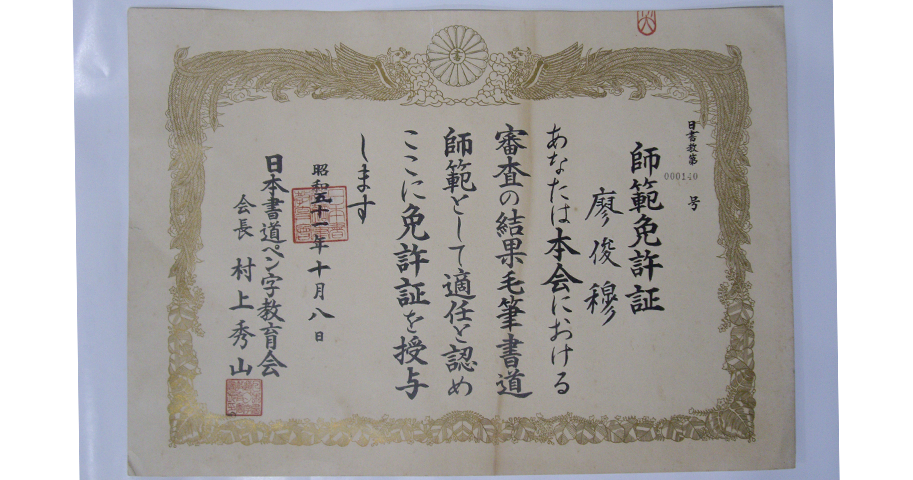 日書教第
000140
号
師範免許証
廖俊穆
あなたは本会における
審査の結果毛筆書道
師範として適任と認め
ここに免許証を授与
します
昭和五十一年十月八日
日本書道ペン字教育会
会長 村上秀山